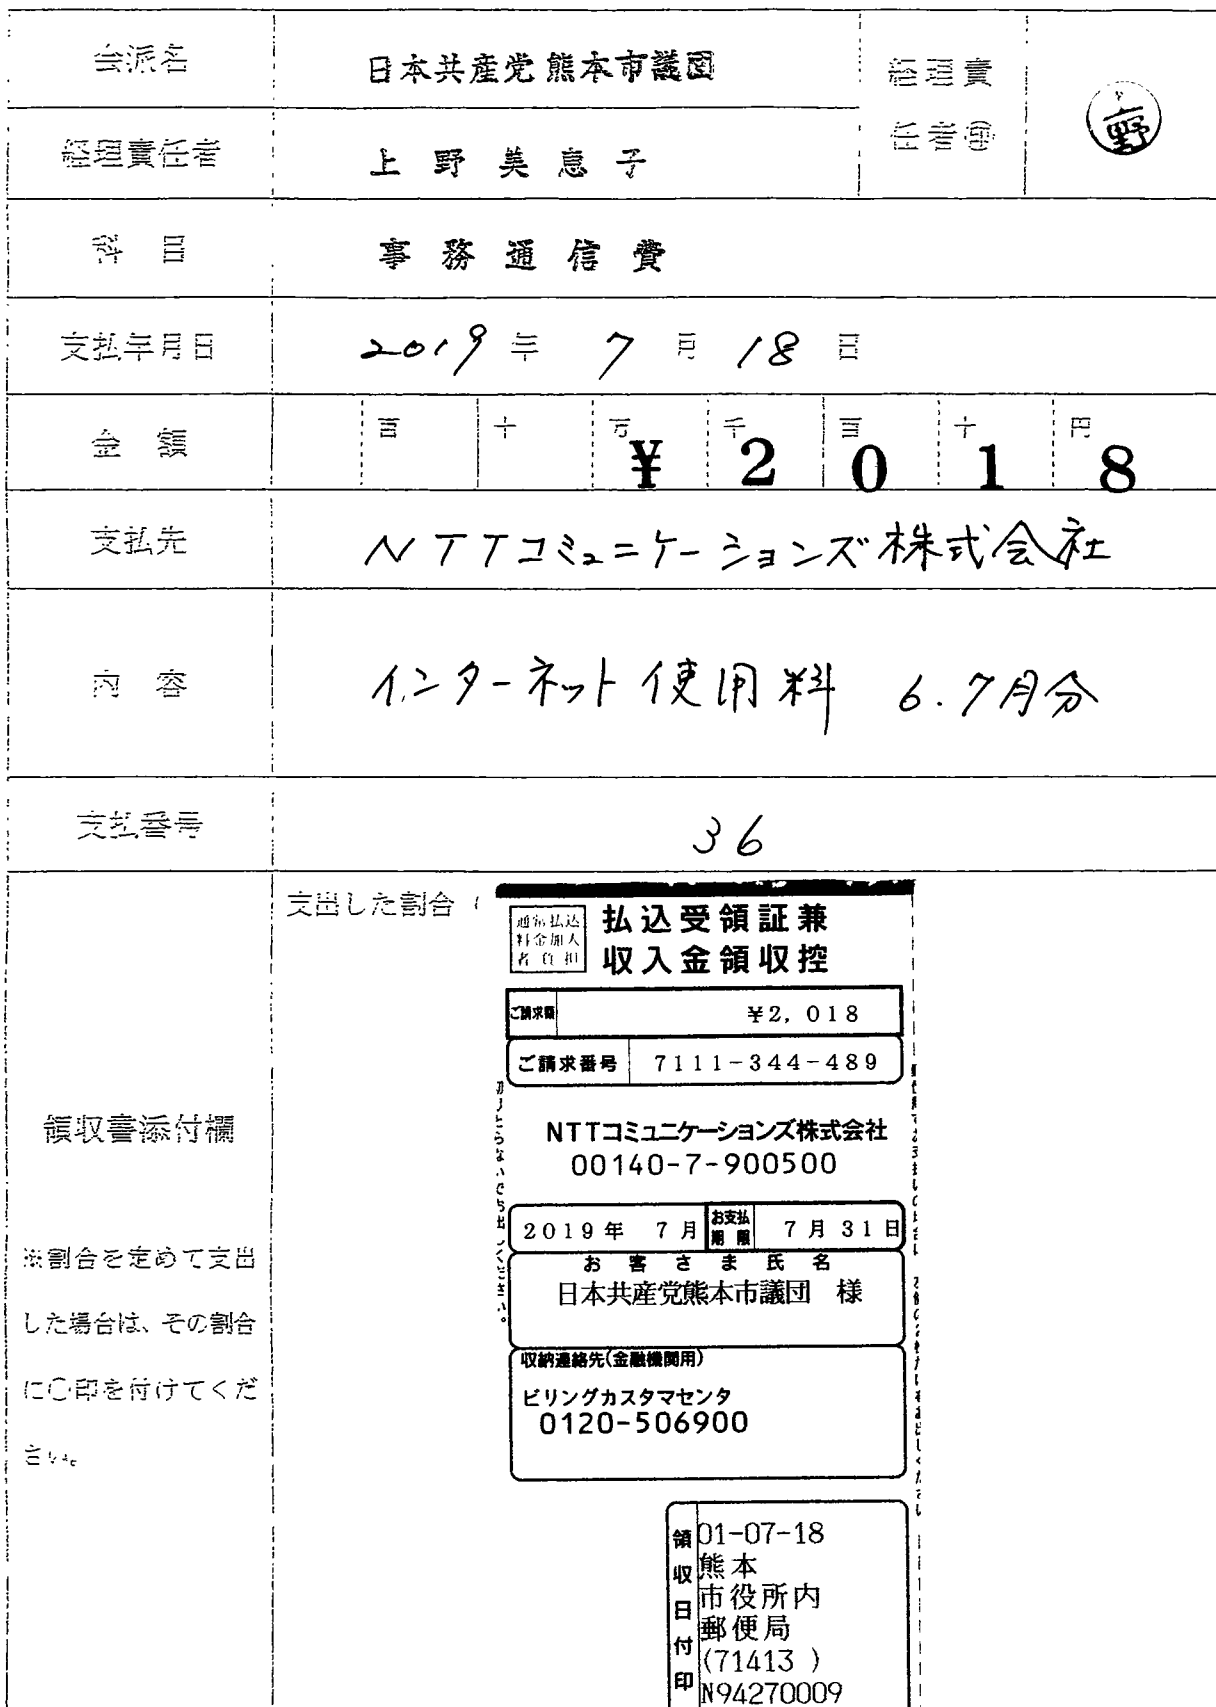 会派名 日本共産党熊本市議団 経理責任者㊞ 上野
経理責任者 上野美恵子
科目 事務通信費
支払年月日 2019年 7月 18日
金額 百 十 万 千 百 十 円
¥2018
支払先 NTTコミュニケーションズ株式会社
内容 インターネット使用料 6.7月分
支払番号 36
領収書添付欄
※割合を定めて支出
した場合は、その割合
に〇印を付けてくだ
さい。
支出した割合 (
通常払込
料金加入
者負担
払込受領証兼
収入金領収控
ご請求額 ¥2,018
ご請求番号 7111-344-489
NTTコミュニケーションズ株式会社
00140-7-900500
2019年 7月 お支払期限 7月31日
お客さま氏名
日本共産党熊本市議団 様
収納連絡先(金融機関用)
ビリングカスタマセンタ
0120-506900
切りとらないでお出しください。
領収日付印
01-07-18
熊本
市役所内
郵便局
(71413 )
N94270009